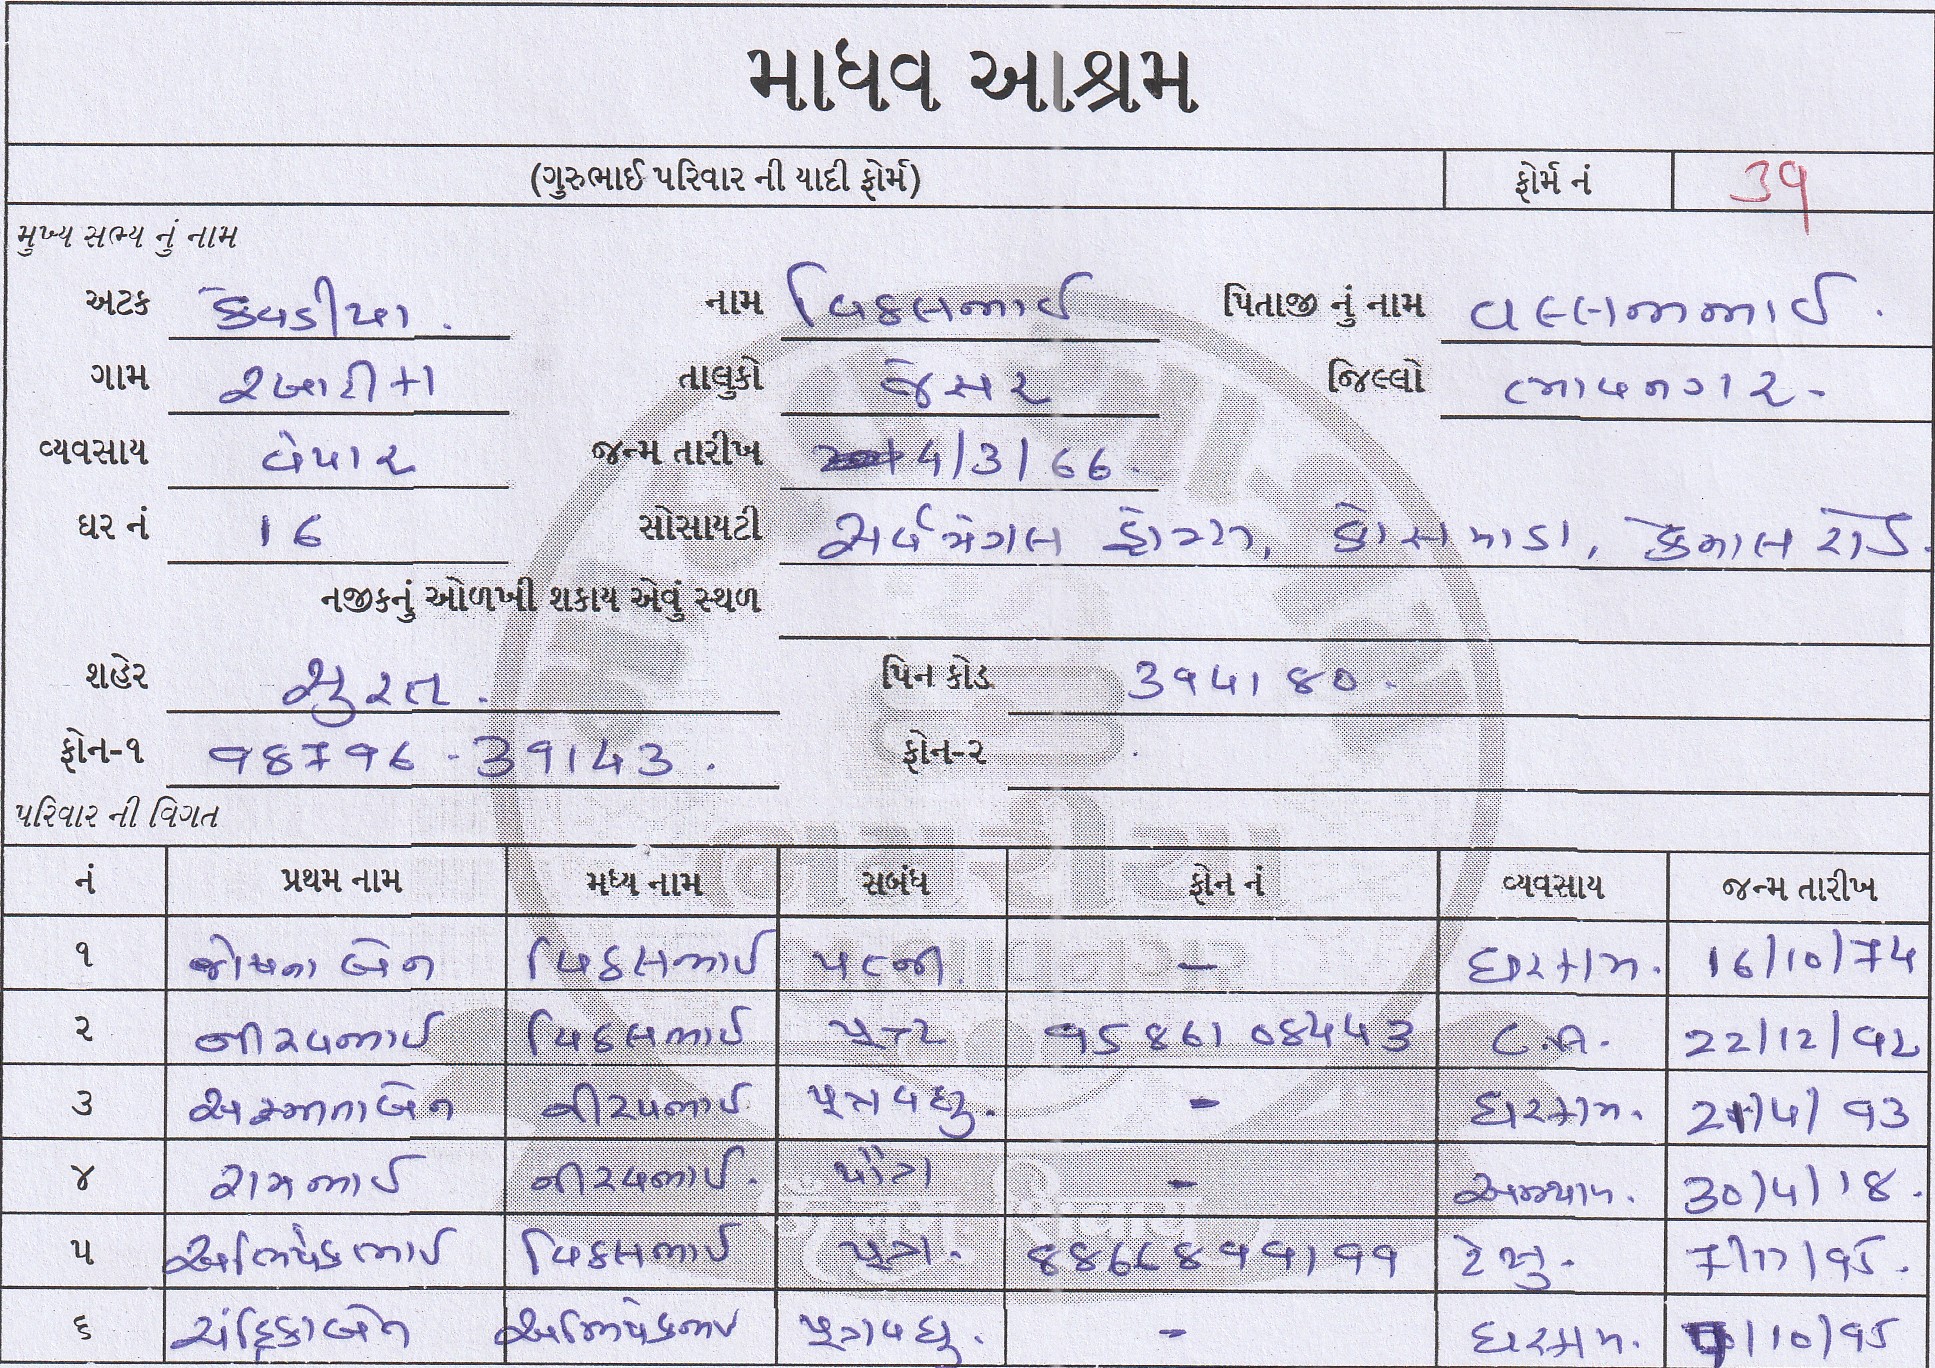 માધવ આશ્રમ
(ગુરુભાઈ પરિવાર ની યાદી ફોર્મ) ફોર્મ નં 39
મુખ્ય સભ્ય નું નામ
અટક કેવડીયા. નામ વિઠલભાઈ પિતાજી નું નામ વલ્લભભાઈ.
ગામ રબારીકા તાલુકો જેસર જિલ્લો ભાવનગર-
વ્યવસાય વેપાર જન્મ તારીખ 4/3/66.
ઘર નં 16 સોસાયટી સર્વમંગલ હોમ્સ, કોસમાડા, કેનાલ રોડ.
નજીકનું ઓળખી શકાય એવું સ્થળ
શહેર સુરત. પિન કોડ 394180.
ફોન-૧ 98796-39143. ફોન-૨
પરિવાર ની વિગત
નં પ્રથમ નામ મધ્ય નામ સબંધ ફોન નં વ્યવસાય જન્મ તારીખ
૧ વિઠલભાઈ પત્ની - ઘરકામ. 16/10/74
૨ નીરવભાઈ વિઠલભાઈ પુત્ર 95861 08443 C.A. 22/12/92
૩ અસ્મીતાબેન નીરવભાઈ પુત્રવધુ. - ઘરકામ. 21/4/93
૪ રામભાઈ નીરવભાઈ. પૌત્ર - અભ્યાસ. 30/4/18.
૫ અભિષેકભાઈ વિઠલભાઈ પુત્ર. 8866899199 7/11/95.
૬ ચંદ્રિકાબેન અભિષેકભાઈ પુત્રવધુ. - ઘરકામ. /10/95